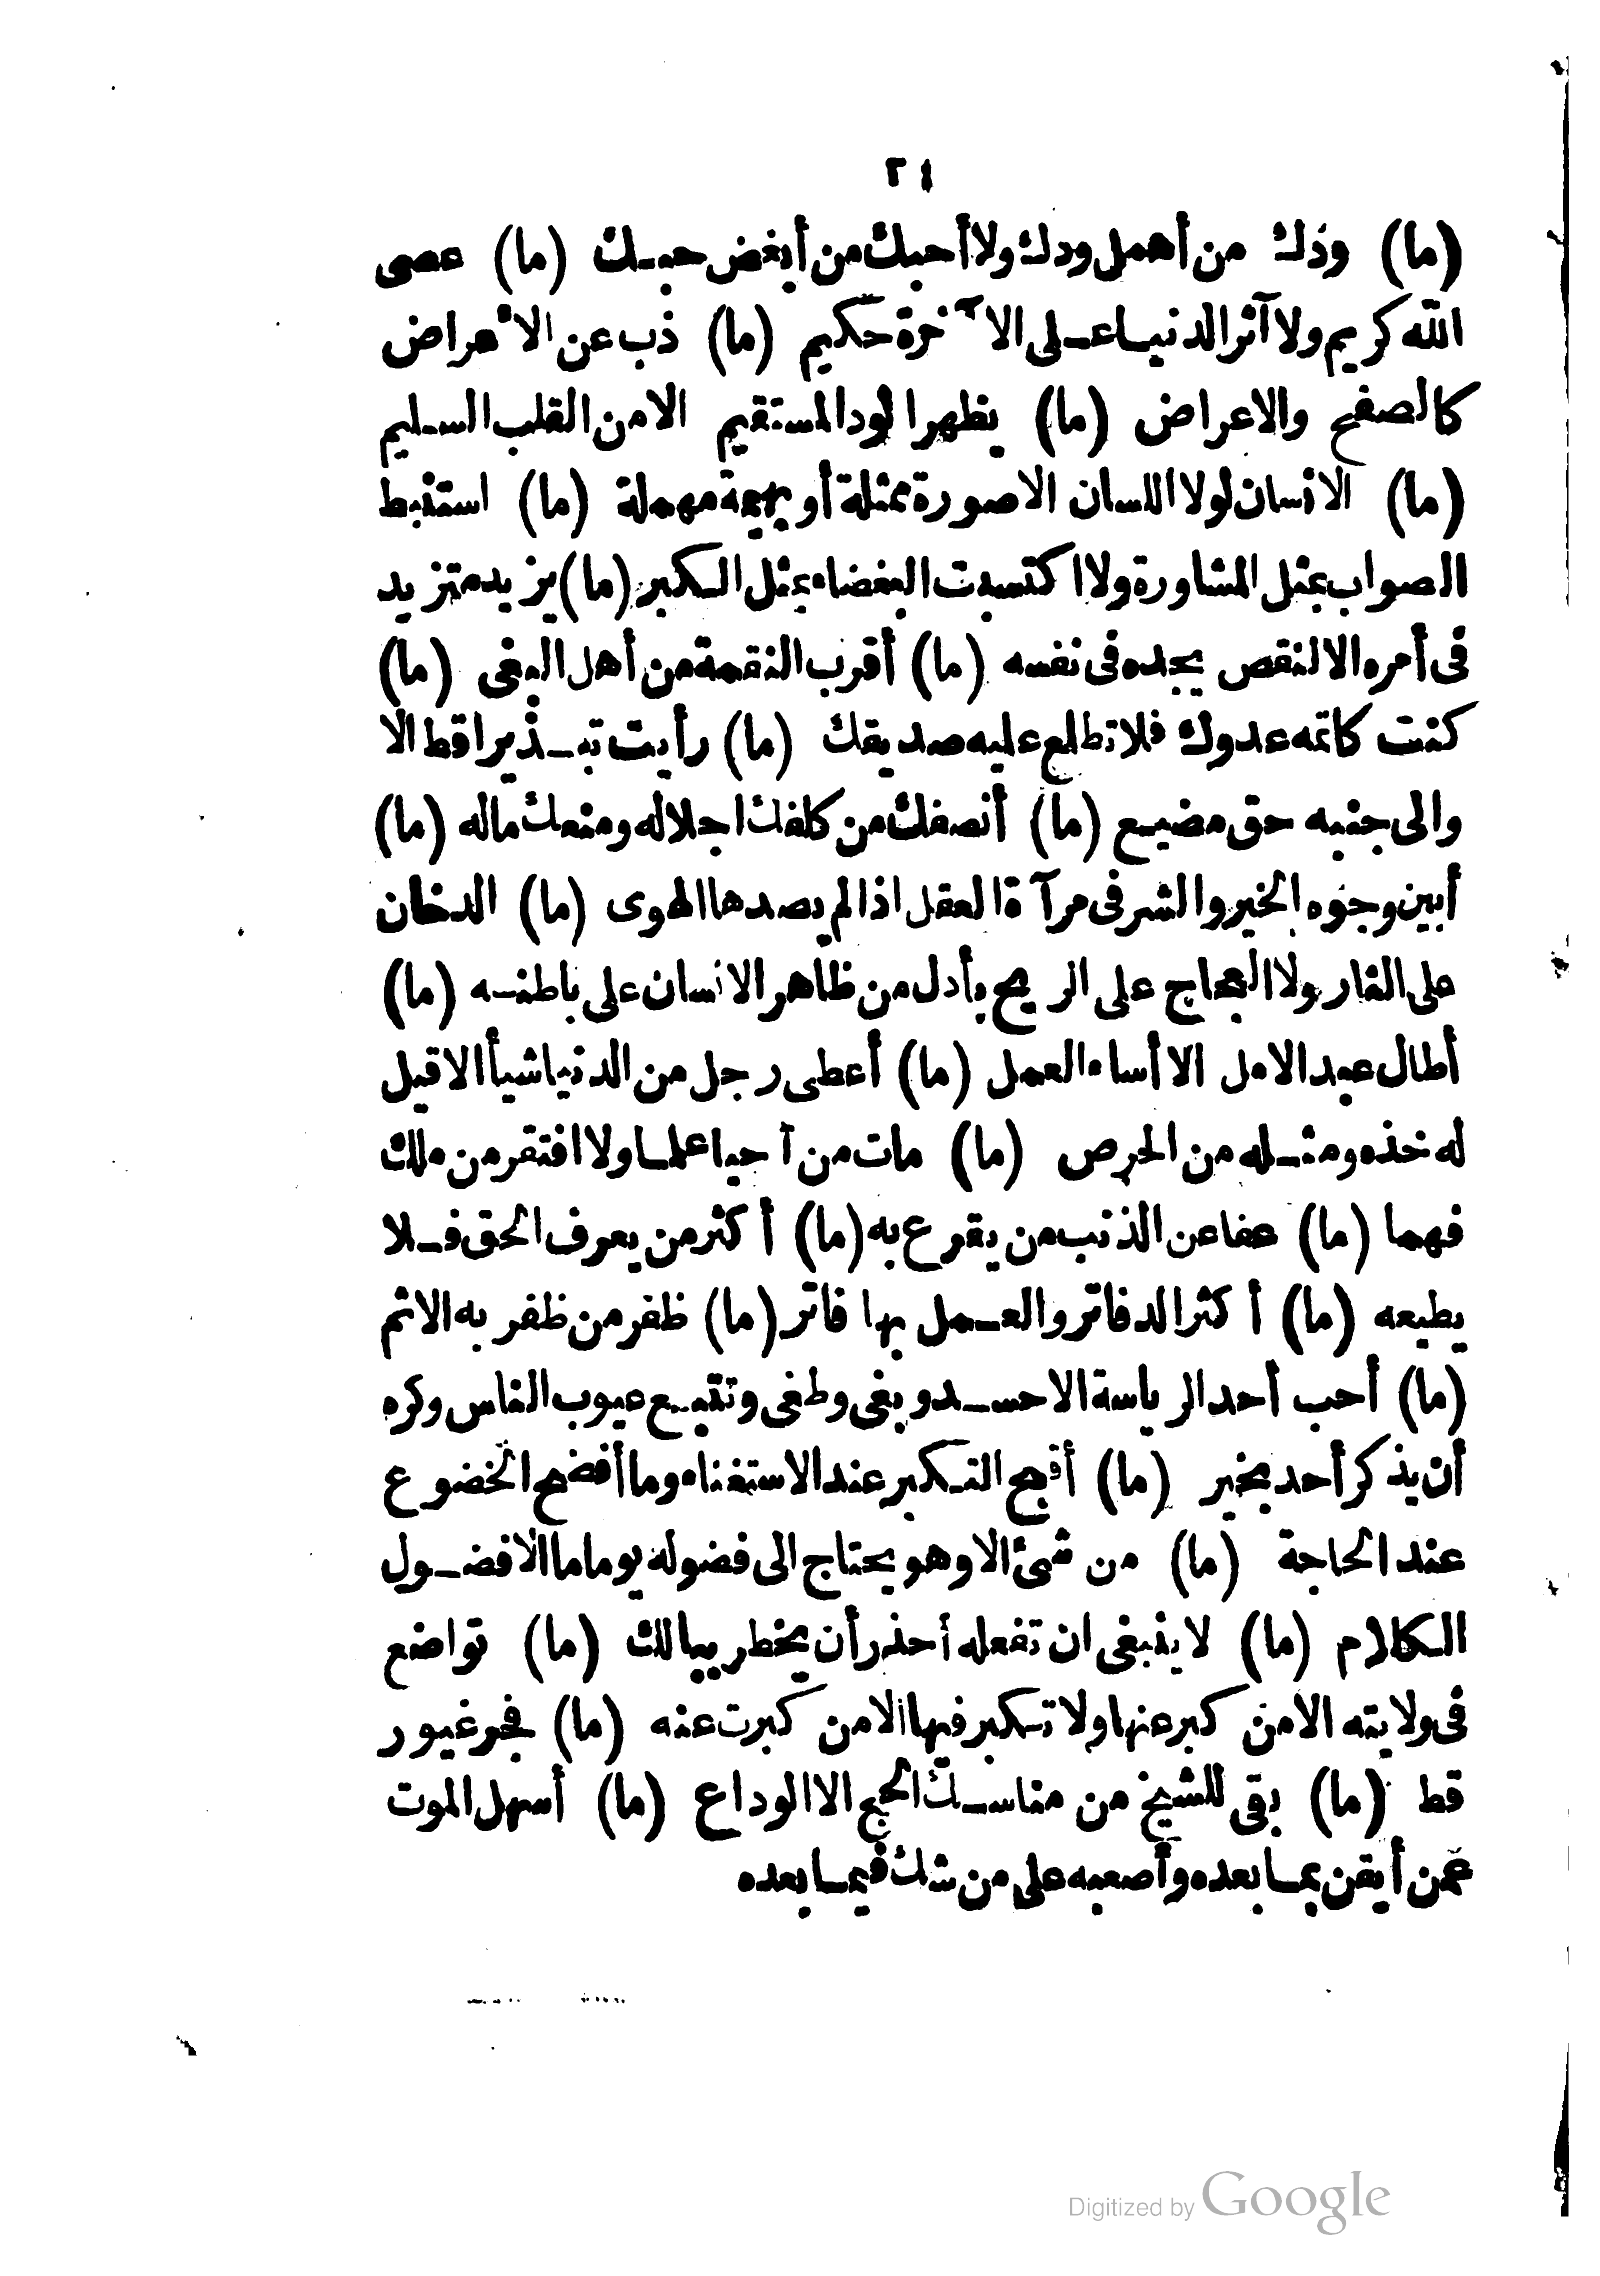 ٢٤
(ما) ودّك من أهمل ودك ولا أحبك من أبغض حبك (ما) عصى
الله كريم ولا آثر الدنيا على الآخرة حكيم (ما) ذب عن الأعراض
كالصفح والاعراض (ما) يظهر الود المستقيم الا من القلب السليم
(ما) الانسان لولا اللسان الا صورة ممثلة أو بهيمة مهملة (ما) استنبط
الصواب بمثل المشاورة ولا اكتسبت البغضاء بمثل الكبر (ما) يزيد متزيد
فى أمره الا لنقص يجده فى نفسه (ما) أقرب النقمة من أهل البغى (ما)
كنت كاتمه عدوك فلا تطلع عليه صديقك (ما) رأيت تبذيرا قط الا
والى جنبه حق مضيع (ما) أنصفك من كلفك اجلاله ومنعك ماله (ما)
أبين وجوه الخير والشر فى مرآة العقل اذا لم يصدها الهوى (ما) الدخان
على النار ولا العجاج على الريح بأدل من ظاهر الانسان على باطنه (ما)
أطال عبد الامل الا أساء العمل (ما) أعطى رجل من الدنيا شيأ الا قيل
له خذه ومثله من الحرص (ما) مات من أحيا علما ولا افتقر من ملك
فهما (ما) عفا عن الذنب من يقرع به (ما) أكثر من يعرف الحق فلا
يطيعه (ما) أكثر الدفاتر والعمل بها فاتر (ما) ظفر من ظفر به الاثم
(ما) أحب أحد الرياسة الا حسد وبغى وطغى وتتبع عيوب الناس وكره
أن يذكر أحد بخير (ما) أقبح التكبر عند الاستغناء وما أفضح الخضوع
عند الحاجة (ما) من شئ الا وهو يحتاج الى فضوله يوما ما الا فضول
الكلام (ما) لا ينبغى ان تفعله أحذر أن يخطر ببالك (ما) تواضع
فى ولايته الا من كبر عنها ولا تكبر فيها الا من كبرت عنه (ما) فجر غيور
قط (ما) بقى للشيخ من مناسك الحج الا الوداع (ما) أسهل الموت
عمن أيقن بما بعده وأصعبه على من شك فيما بعده
Digitized by Google